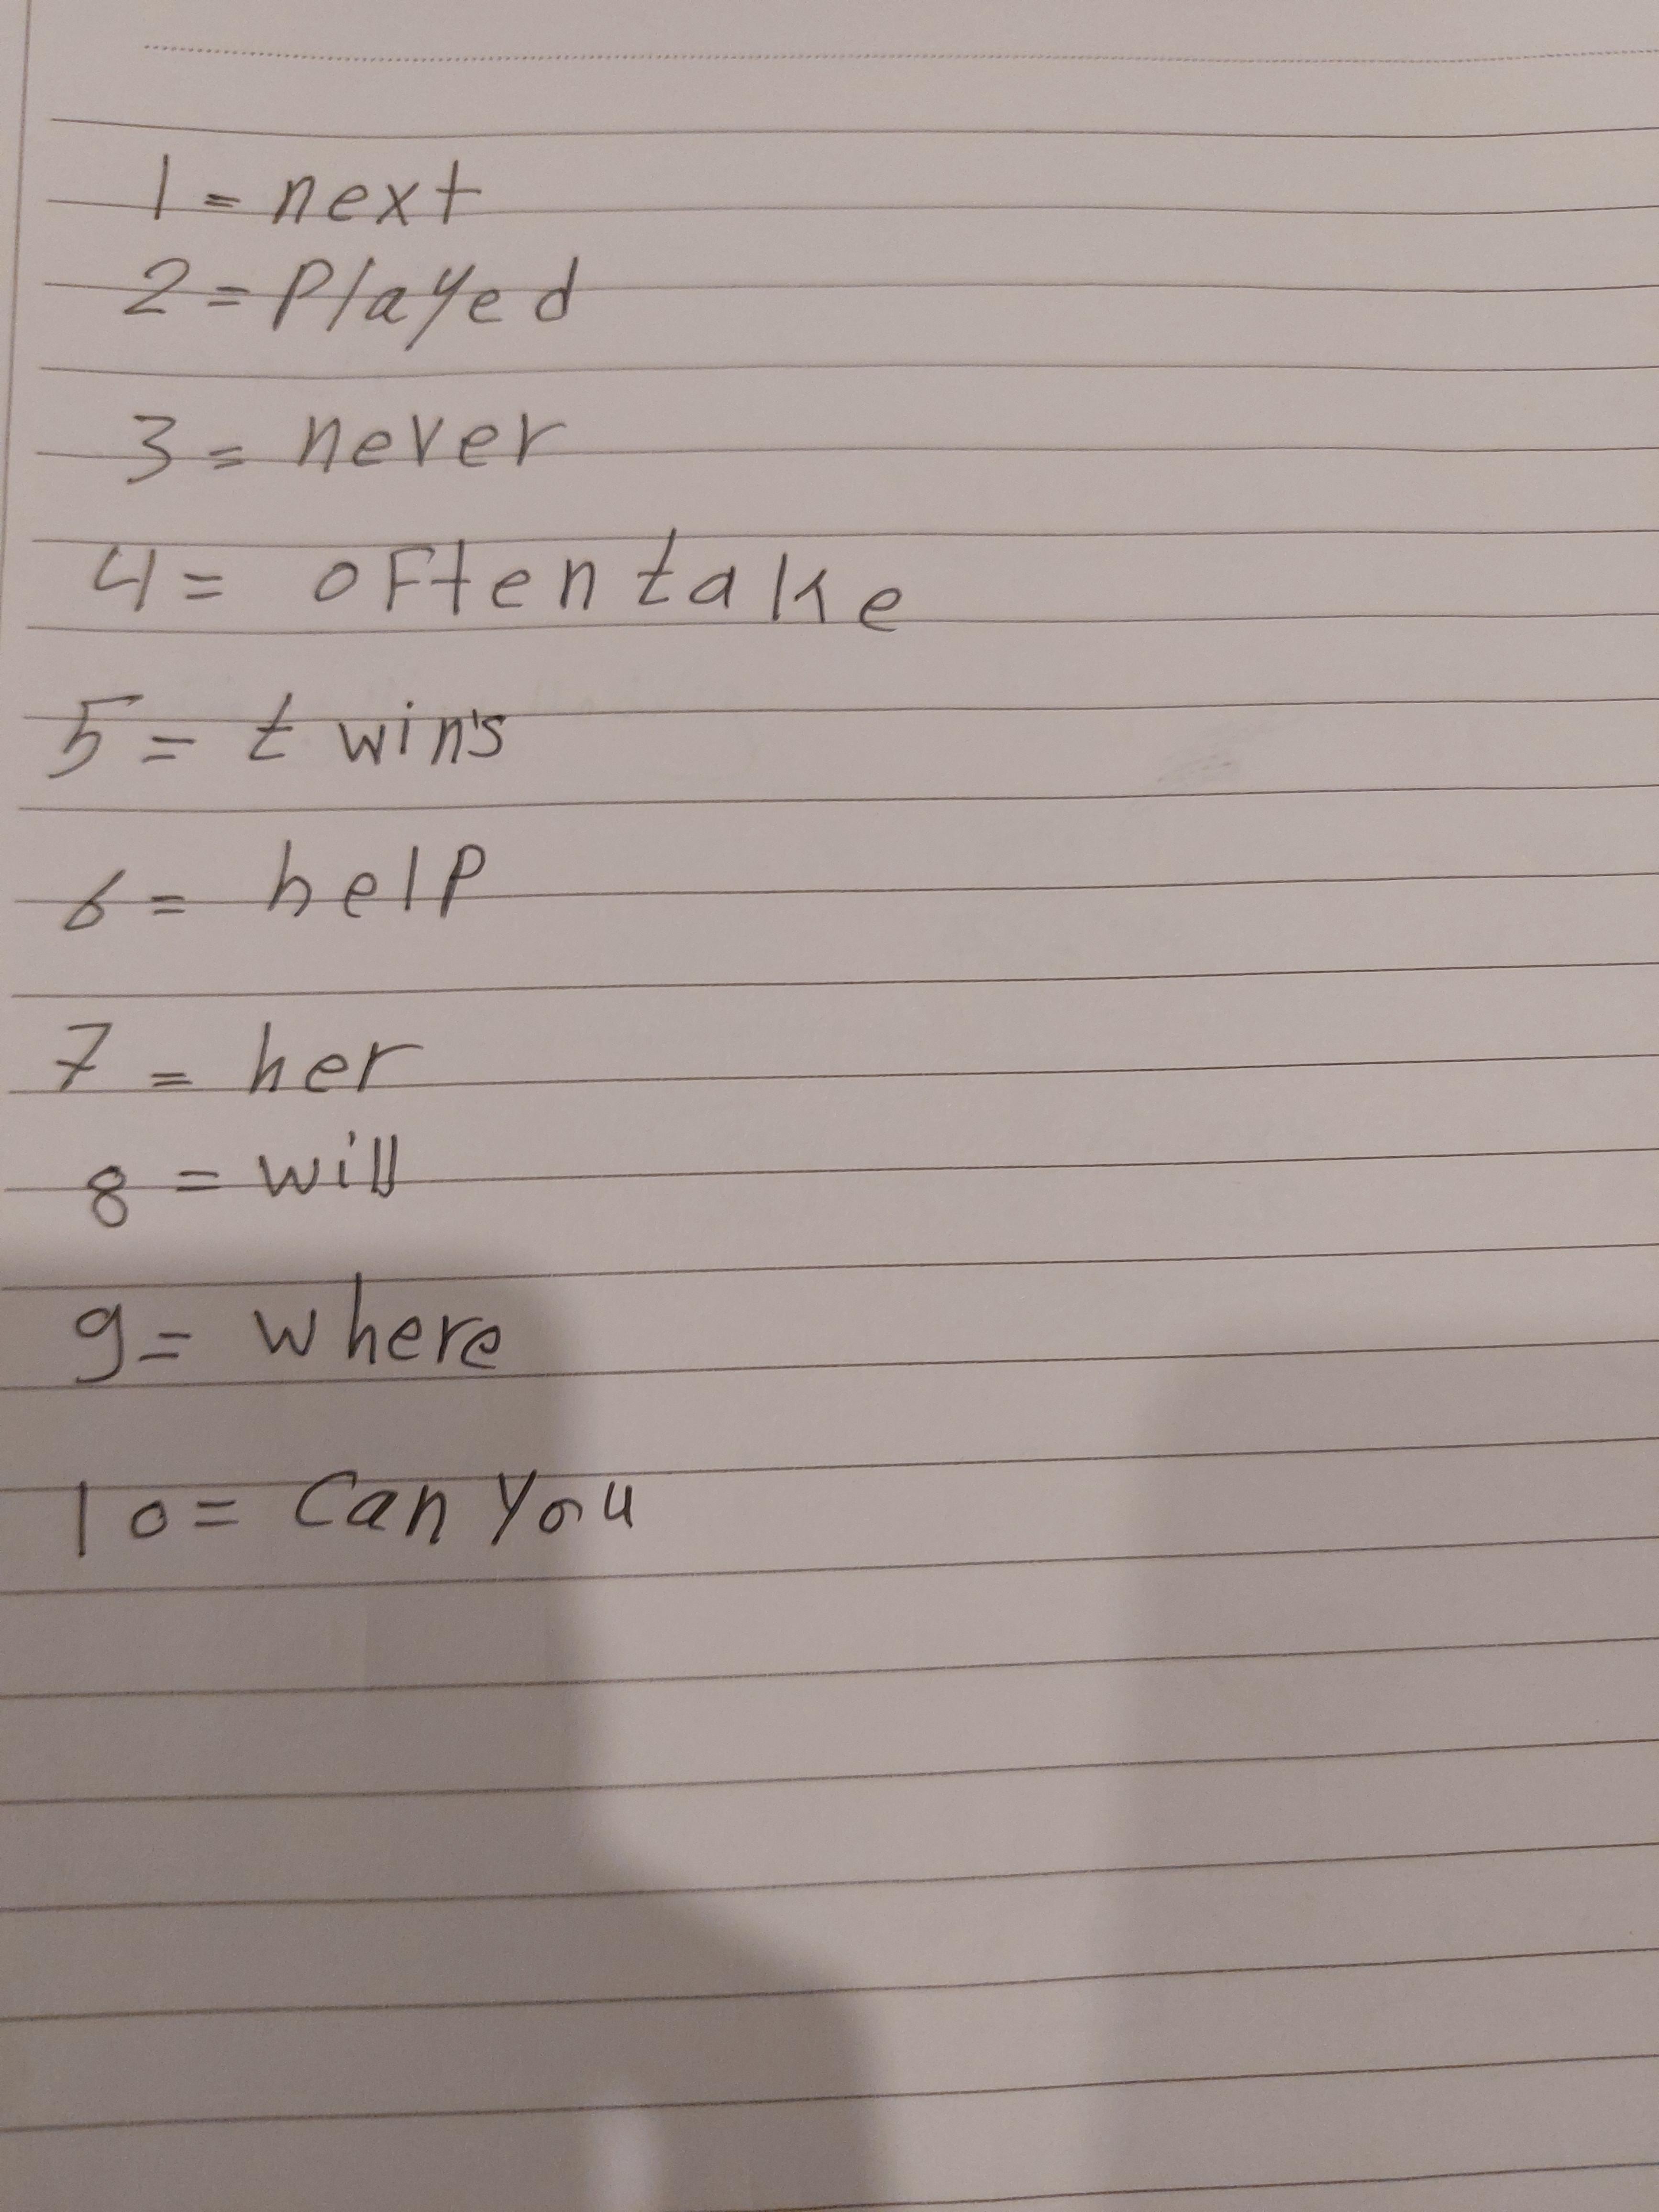 1 = next
2 = Played
3 = never
4 = often take
5 = twin's
6 = help
7 = her
8 = will
9 = where
10 = Can you